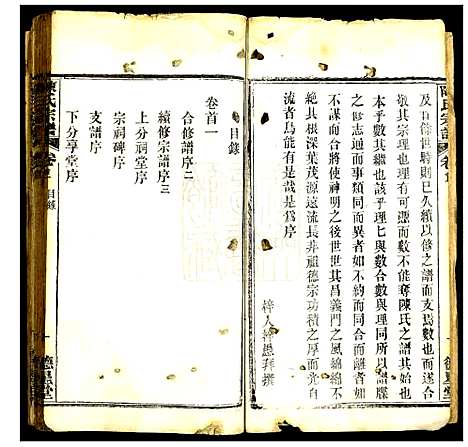 陳氏宗譜
卷首
及百餘世時則已久續以修之譜而支爲數而遂合
敬其宗理也理有可憑而數不能奪陳氏之譜其始也
本乎數其繼也該乎理七與數合數與理同所以譜牒
之修志通而事類同而異者如不約而同合而離即
不謀而合將使神明之後世世其昌義門之風綿綿不
絕其根深葉茂源遠流長非祖德宗功積之厚而光自
流者烏能有以哉是爲序
梓人
拜撰
德星堂
目錄
卷首一
合修譜序二
續修宗譜序
上分祠堂序
宗祠碑序
支譜序
下分享堂序
陳氏宗譜
卷首
目錄
一
德星堂